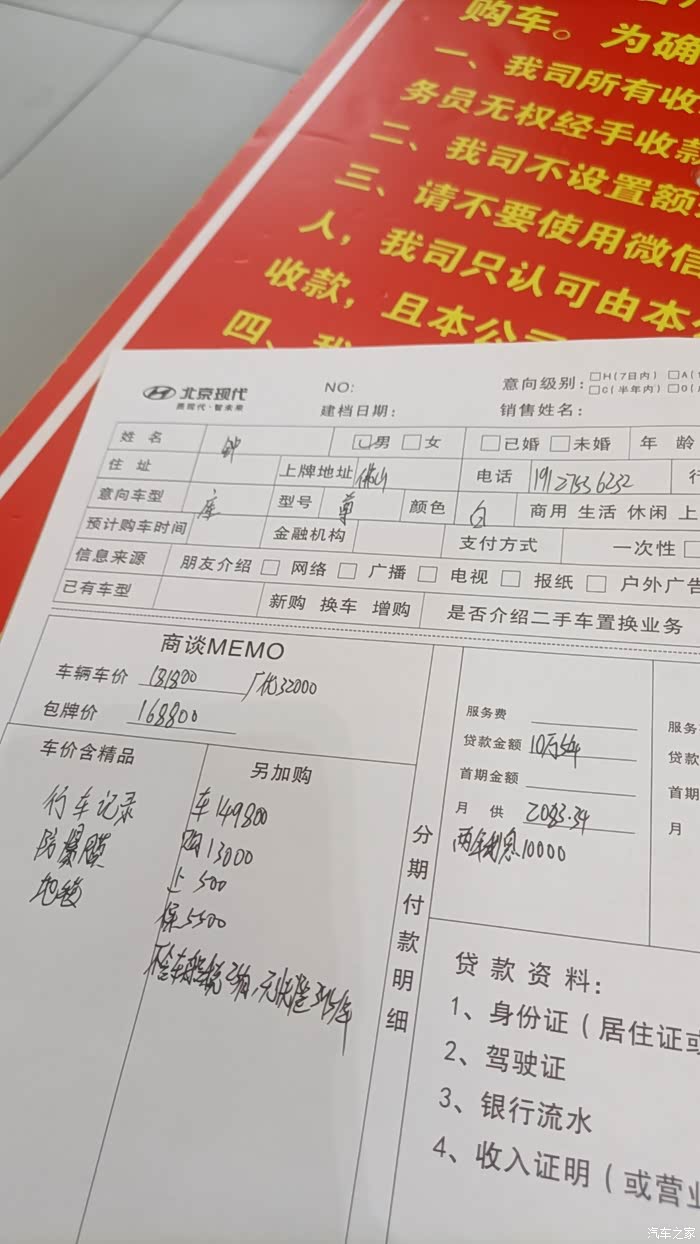 购车。为确
一、我司所有收
务员无权经手收款
二、我司不设置额
三、请不要使用微信
人，我司只认可由本
收款，且本公司
四、我
北京现代
NO:
意向级别: □H(7日内) □A(
质现代·智未来
建档日期:
□C(半年内) □O(
销售姓名:
姓 名 □男 □女 □已婚 □未婚 年 龄
住 址 上牌地址 佛山 电话 19127536232 行
意向车型 库 型号 尊 颜色 白 商用 生活 休闲 上
预计购车时间 金融机构 支付方式 一次性 □
信息来源 朋友介绍 □ 网络 □ 广播 □ 电视 □ 报纸 □ 户外广告
已有车型 新购 换车 增购 是否介绍二手车置换业务
商谈MEMO
车辆车价 181800 厂优32000
包牌价 168800
车价含精品
行车记录
防爆膜
地毯
另加购
车149800
购13000
上 500
保5500
分期付款明细
服务费
贷款金额 10万5年
首期金额
月 供 2083.34
两年利息10000
服务
贷款
首期
月
贷 款 资 料：
1、身份证（居住证或
2、驾驶证
3、银行流水
4、收入证明（或营业
汽车之家